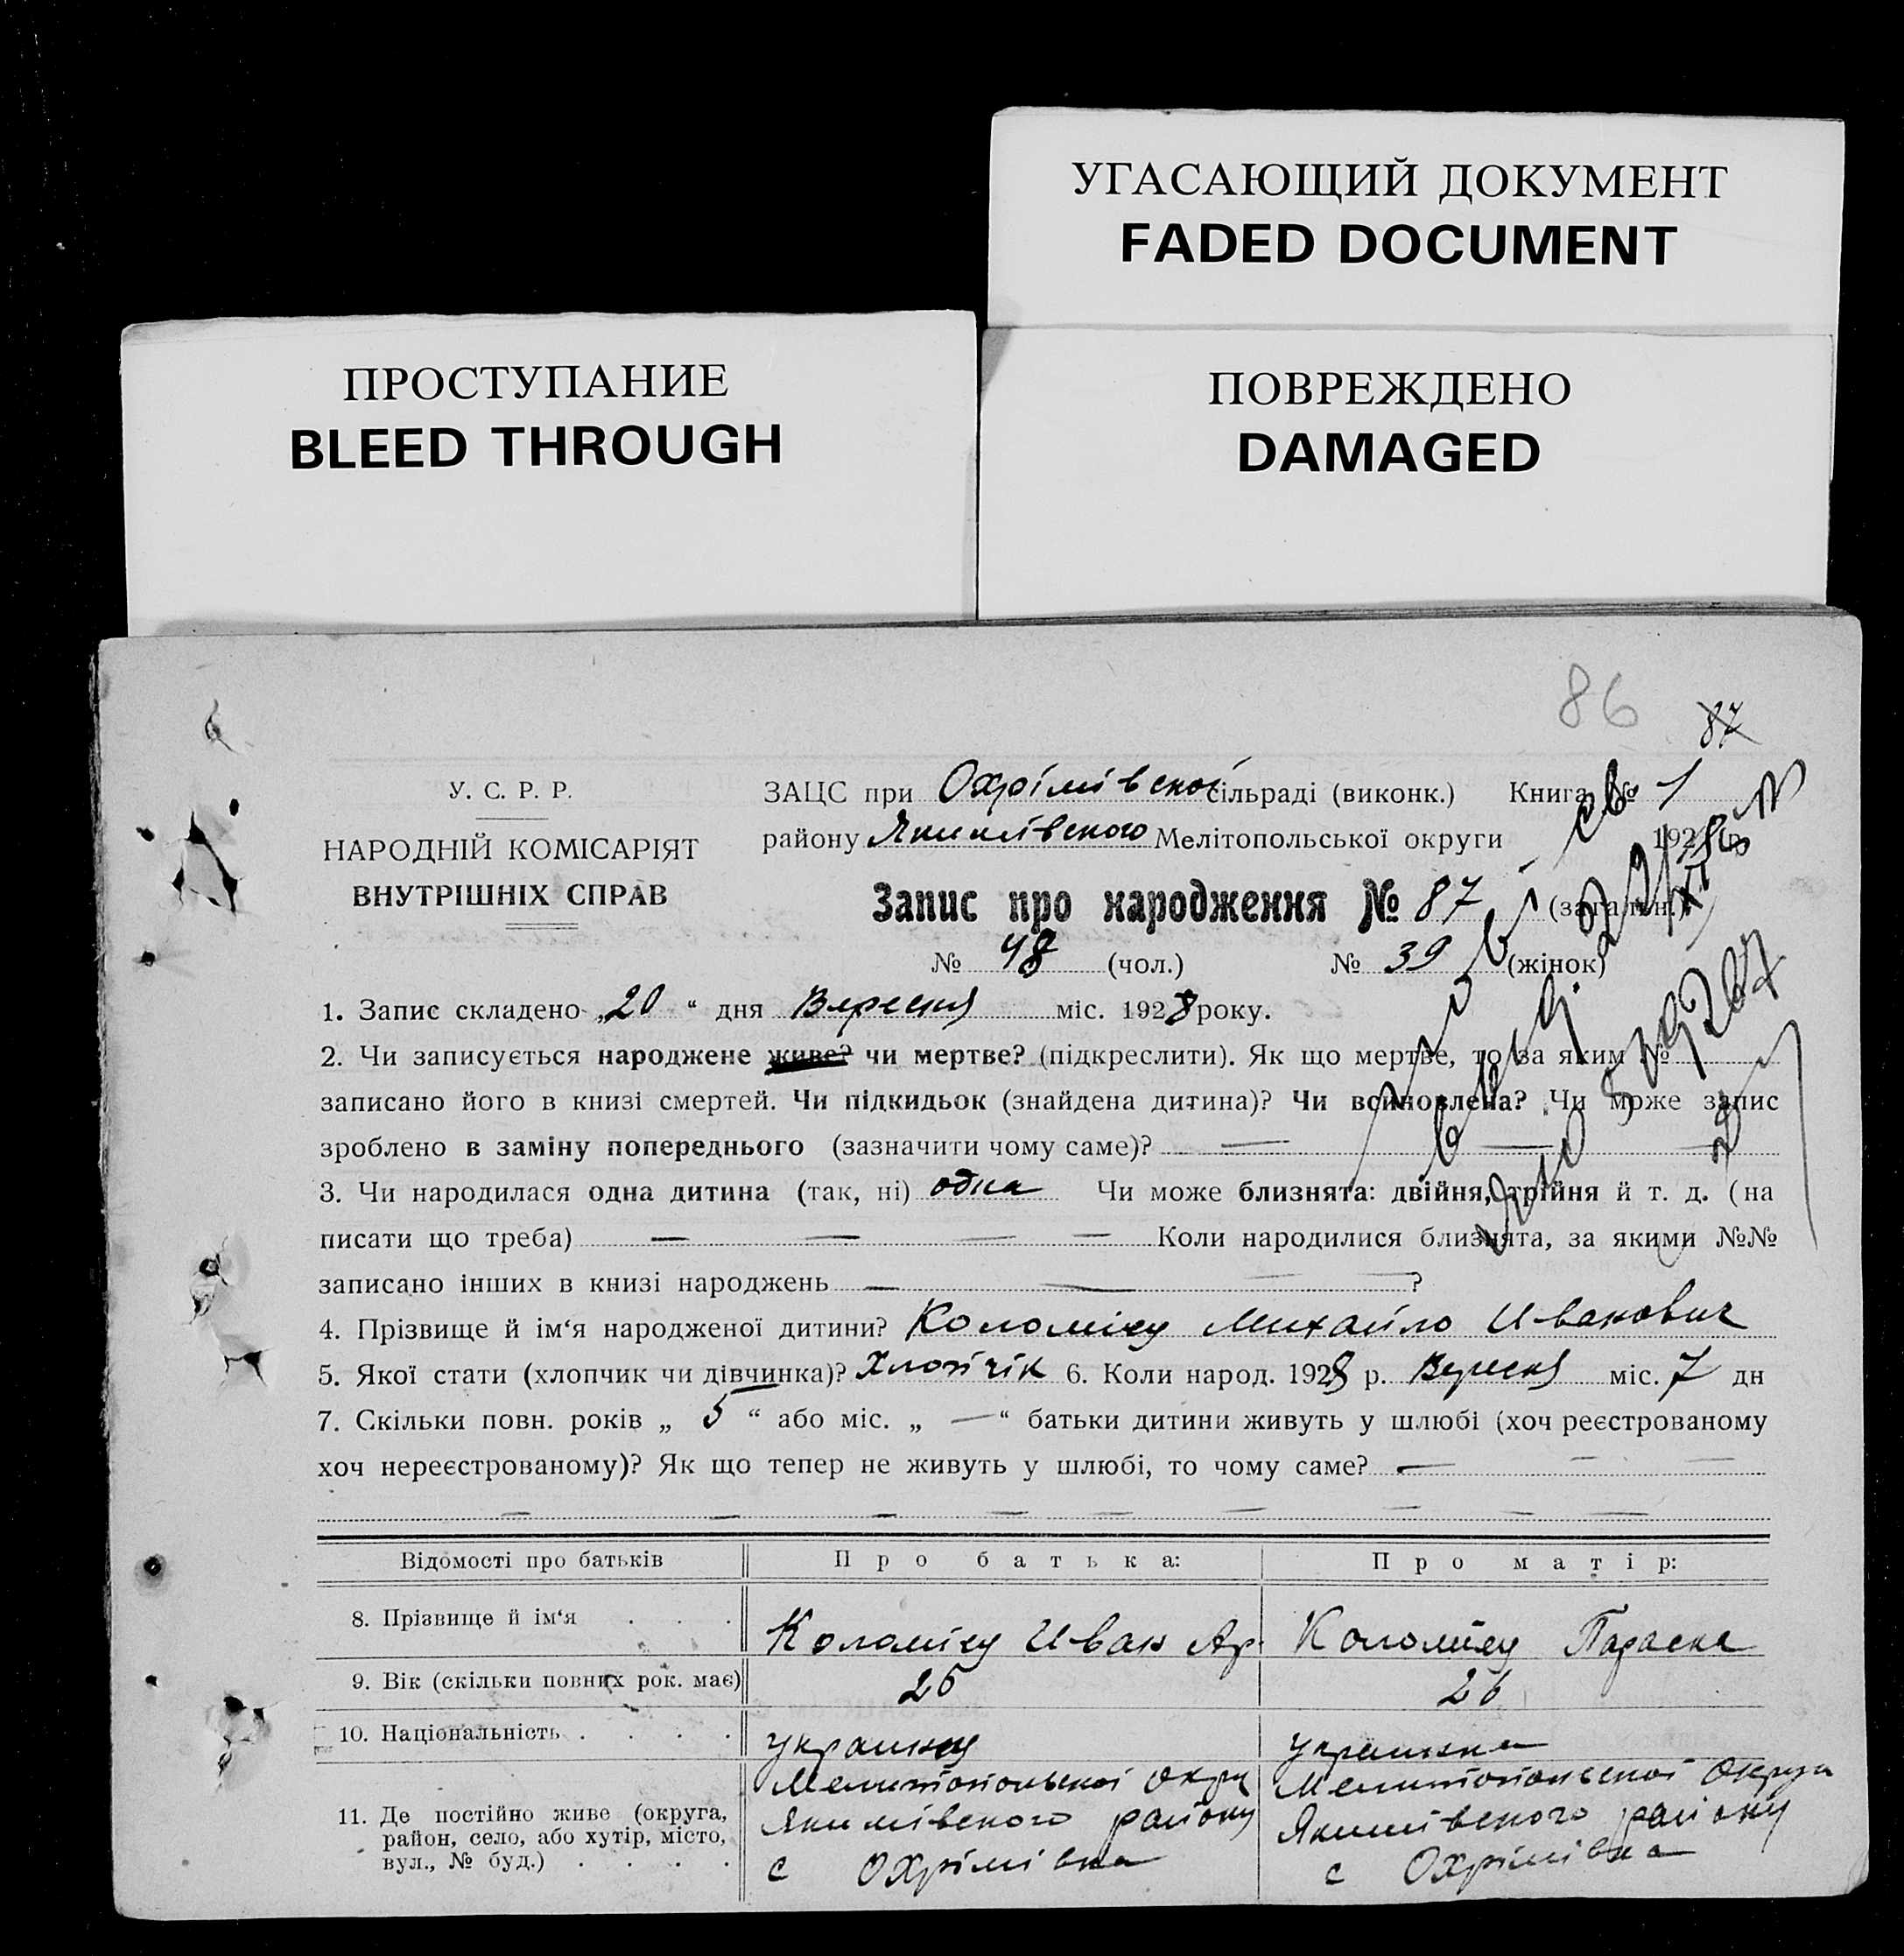 УГАСАЮЩИЙ ДОКУМЕНТ
FADED DOCUMENT
ПРОСТУПАНИЕ
BLEED THROUGH
ПОВРЕЖДЕНО
DAMAGED
86
87
У. С. Р. Р.
НАРОДНІЙ КОМІСАРІЯТ
ВНУТРІШНІХ СПРАВ
ЗАЦС при Охрімівской сільраді (виконк.) Книга № 1
району Якимівского Мелітопольської округи 1928 р.
Запис про народження № 87 (загальн.)
№ 48 (чол.) № 39 (жінок)
1. Запис складено „20“ дня Вересня міс. 1928 року.
2. Чи записується народжене живе? чи мертве? (підкреслити). Як що мертве, то за яким №
записано його в книзі смертей. Чи підкидьок (знайдена дитина)? Чи всиновлена? Чи може запис
зроблено в заміну попереднього (зазначити чому саме)? —
3. Чи народилася одна дитина (так, ні) одна Чи може близнята: двійня, трійня й т. д. (на
писати що треба) — — — — Коли народилися близнята, за якими №№
записано інших в книзі народжень — — — ?
4. Прізвище й ім‘я народженої дитини? Коломієц Михайло Иванович
5. Якої стати (хлопчик чи дівчинка)? Хлопчік 6. Коли народ. 1928 р. Вересня міс. 7 дн
7. Скільки повн. років „ 5 “ або міс. „ — “ батьки дитини живуть у шлюбі (хоч реєстрованому
хоч нереєстрованому)? Як що тепер не живуть у шлюбі, то чому саме? — — —
— — — — — — — — —
Відомості про батьків Про батька: Про матір:
8. Прізвище й ім‘я . . . Коломієц Иван Ар. Коломієц Параска
9. Вік (скільки повних рок. має) 25 26
10. Національність . . . . українец українка
11. Де постійно живе (округа,
район, село, або хутір, місто,
вул., № буд.) . . . .
Мелитопольской Окру
Якимівского району
с Охрімівка
Мелитопольской Округи
Якимівского району
с Охрімівка